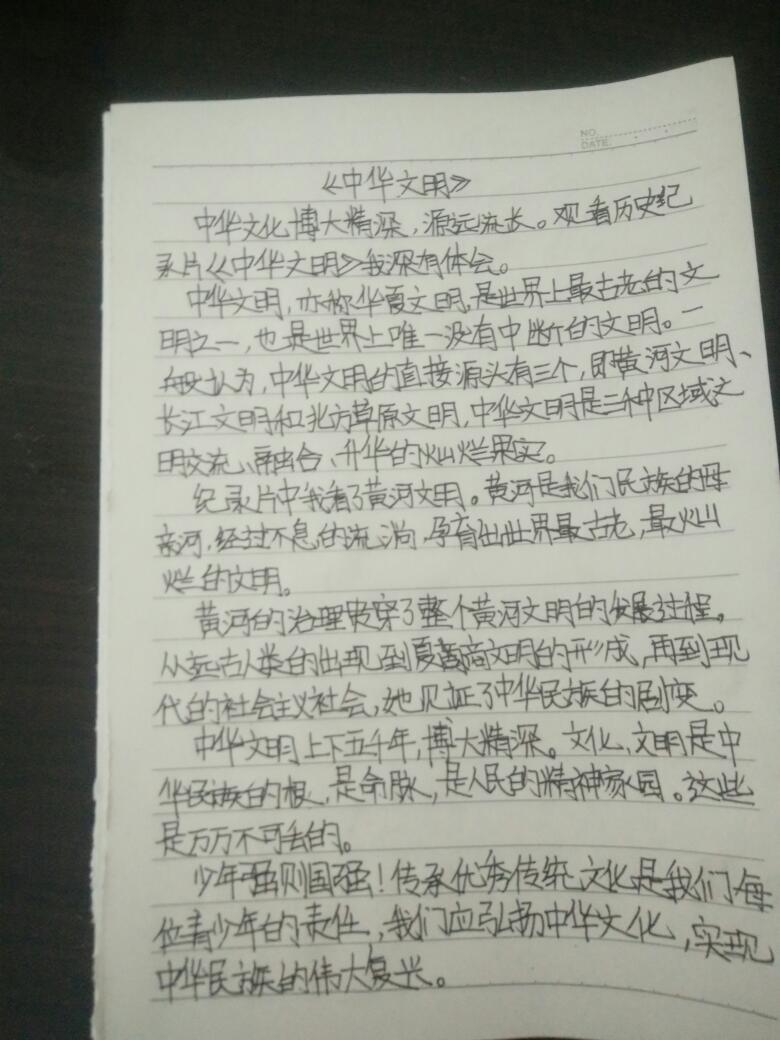 NO.
DATE:
《中华文明》
中华文化博大精深，源远流长。观看历史纪
录片《中华文明》我深有体会。
中华文明，亦称华夏文明，是世界上最古老的文
明之一，也是世界上唯一没有中断的文明。一
般认为，中华文明的直接源头有三个，即黄河文明、
长江文明和北方草原文明，中华文明是三种区域文
明交流、融合、升华的灿烂果实。
纪录片中我看了黄河文明。黄河是我们民族的母
亲河，经过不息的流淌，孕育出世界最古老，最灿
烂的文明。
黄河的治理贯穿了整个黄河文明的发展过程。
从远古人类的出现到夏商文明的形成，再到现
代的社会主义社会，她见证了中华民族的剧变。
中华文明上下五千年，博大精深。文化、文明是中
华民族的根，是命脉，是人民的精神家园。这些
是万万不可丢的。
少年强则国强！传承优秀传统文化是我们每
位青少年的责任，我们应弘扬中华文化，实现
中华民族的伟大复兴。